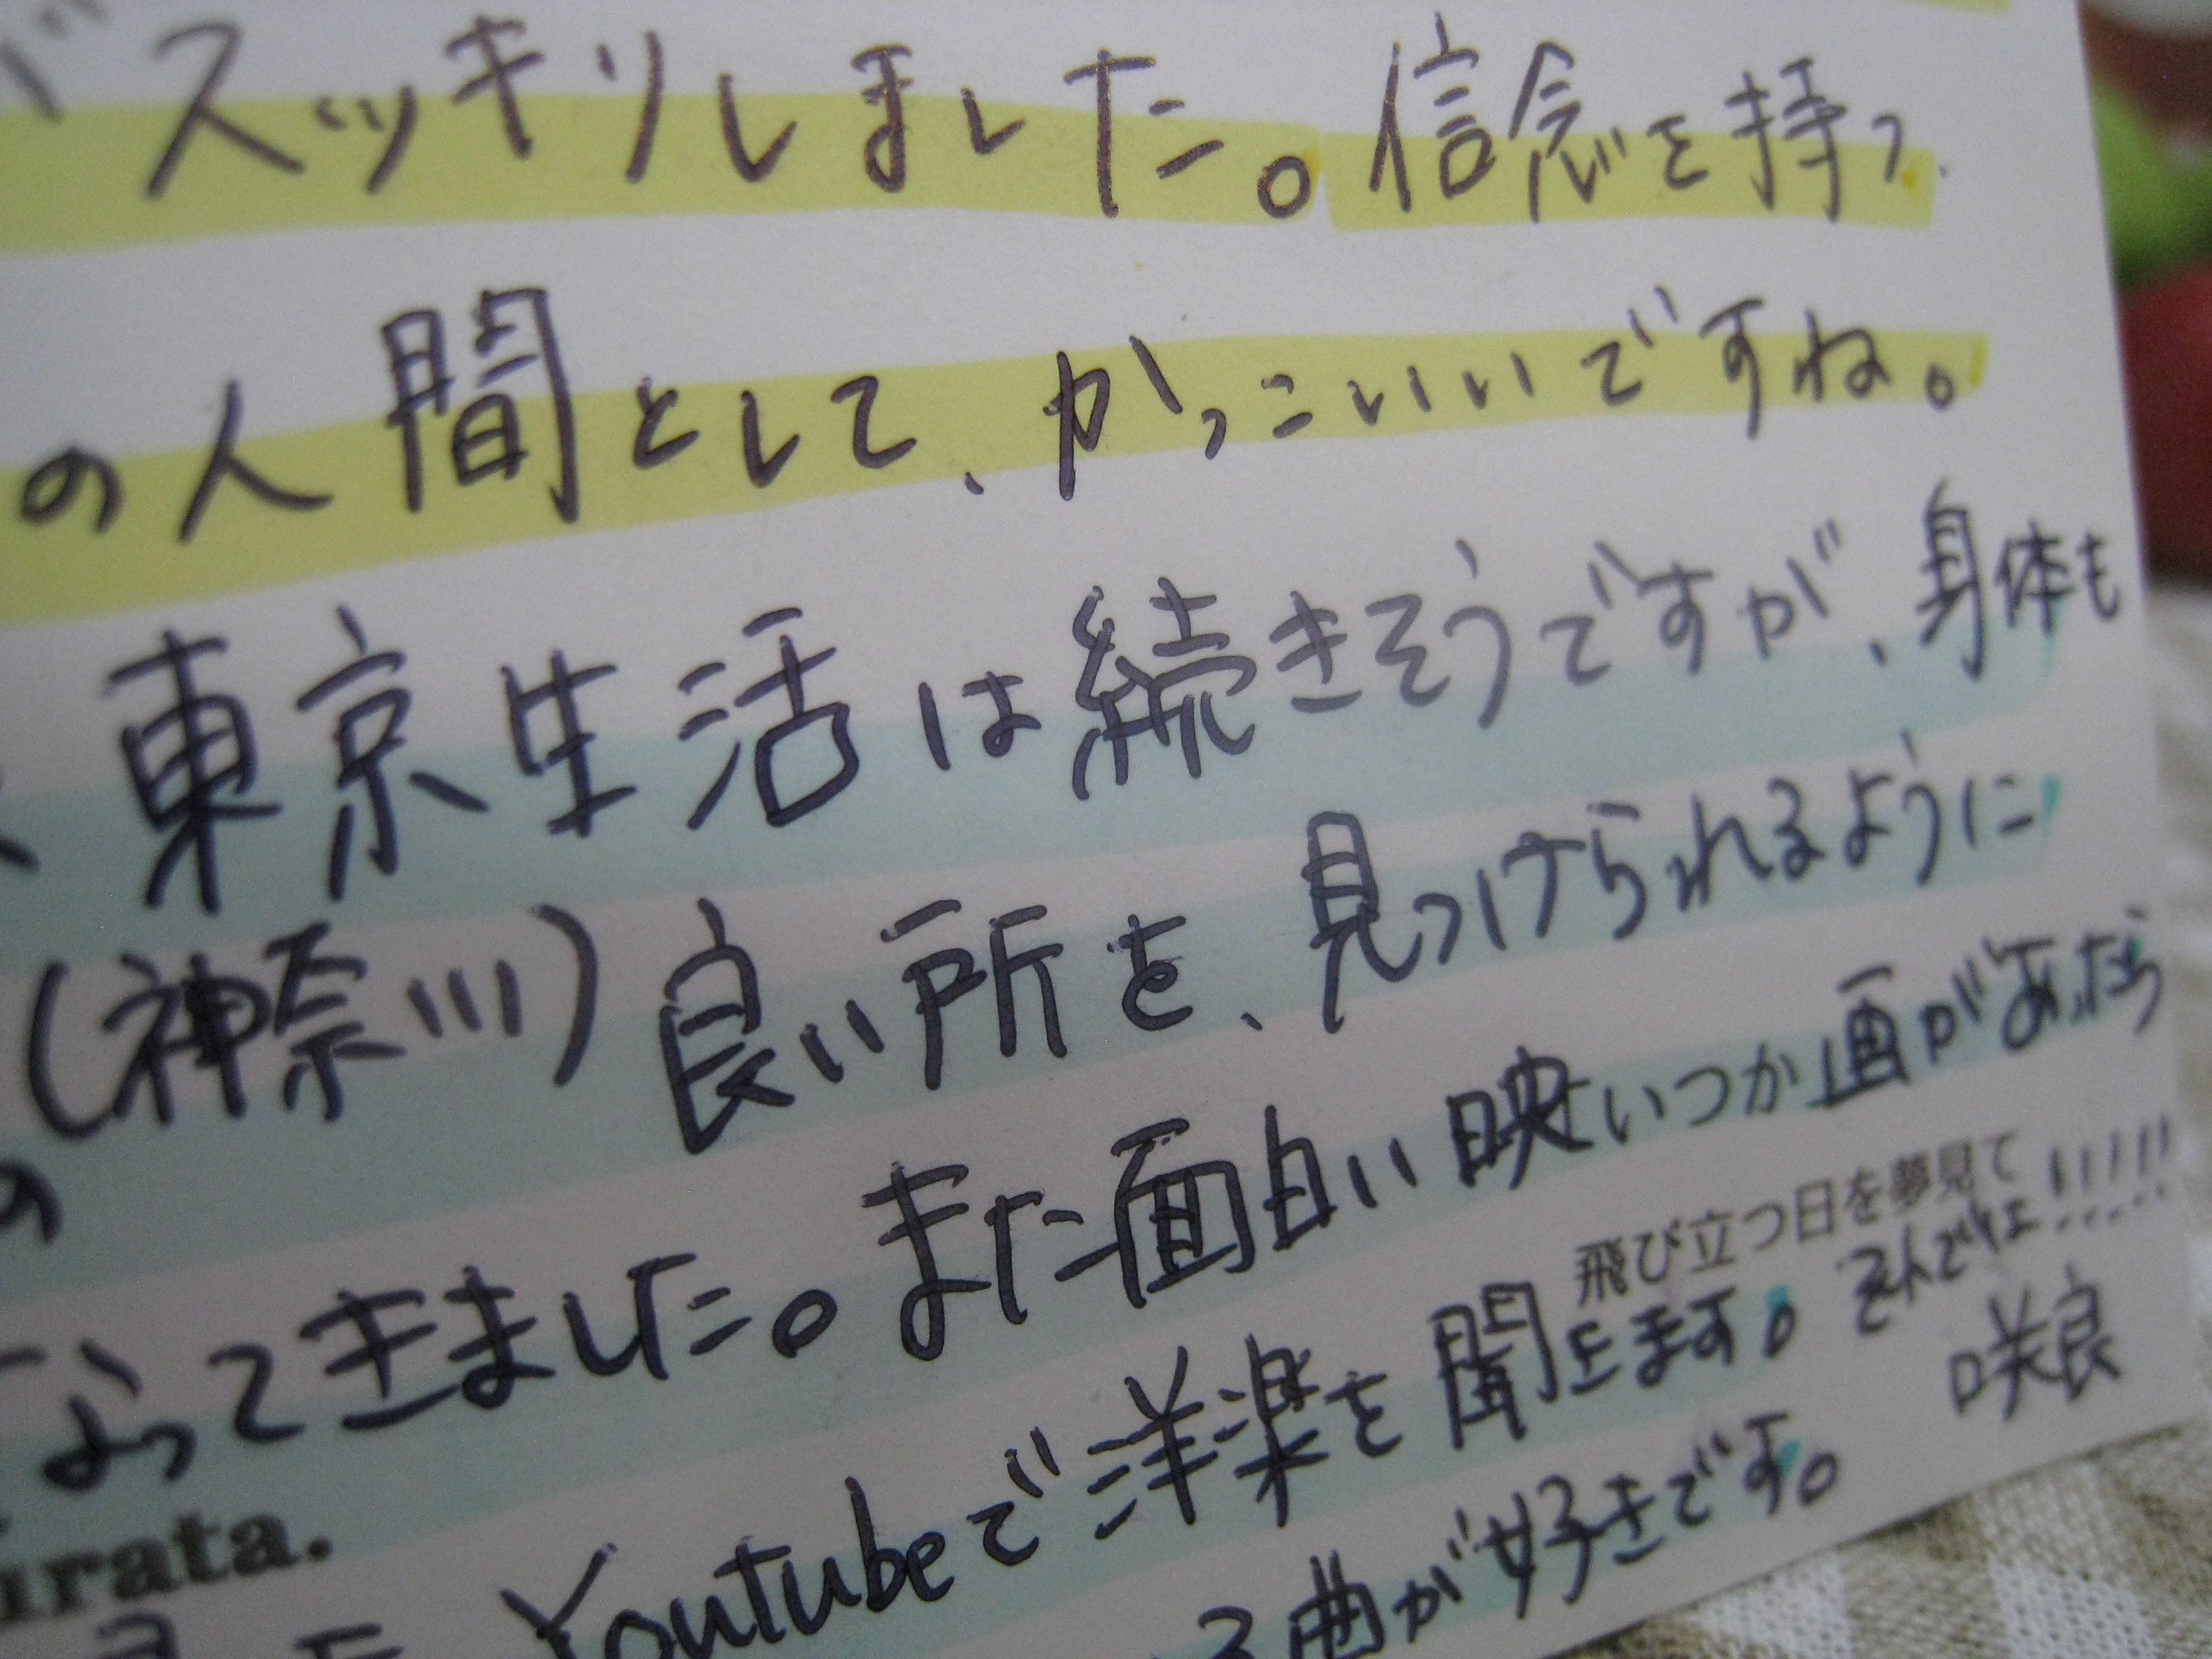 がスッキリしました。信念を持つ
の人間として、かっこいいですね。
東京生活は続きそうですが、身体も
(神奈川)良い所を、見つけられるように
の
なってきました。また面白い映画があったら
いつか
飛び立つ日を夢見て
irata.
Youtubeで洋楽を聞きます。
咲良
る曲が好きです。